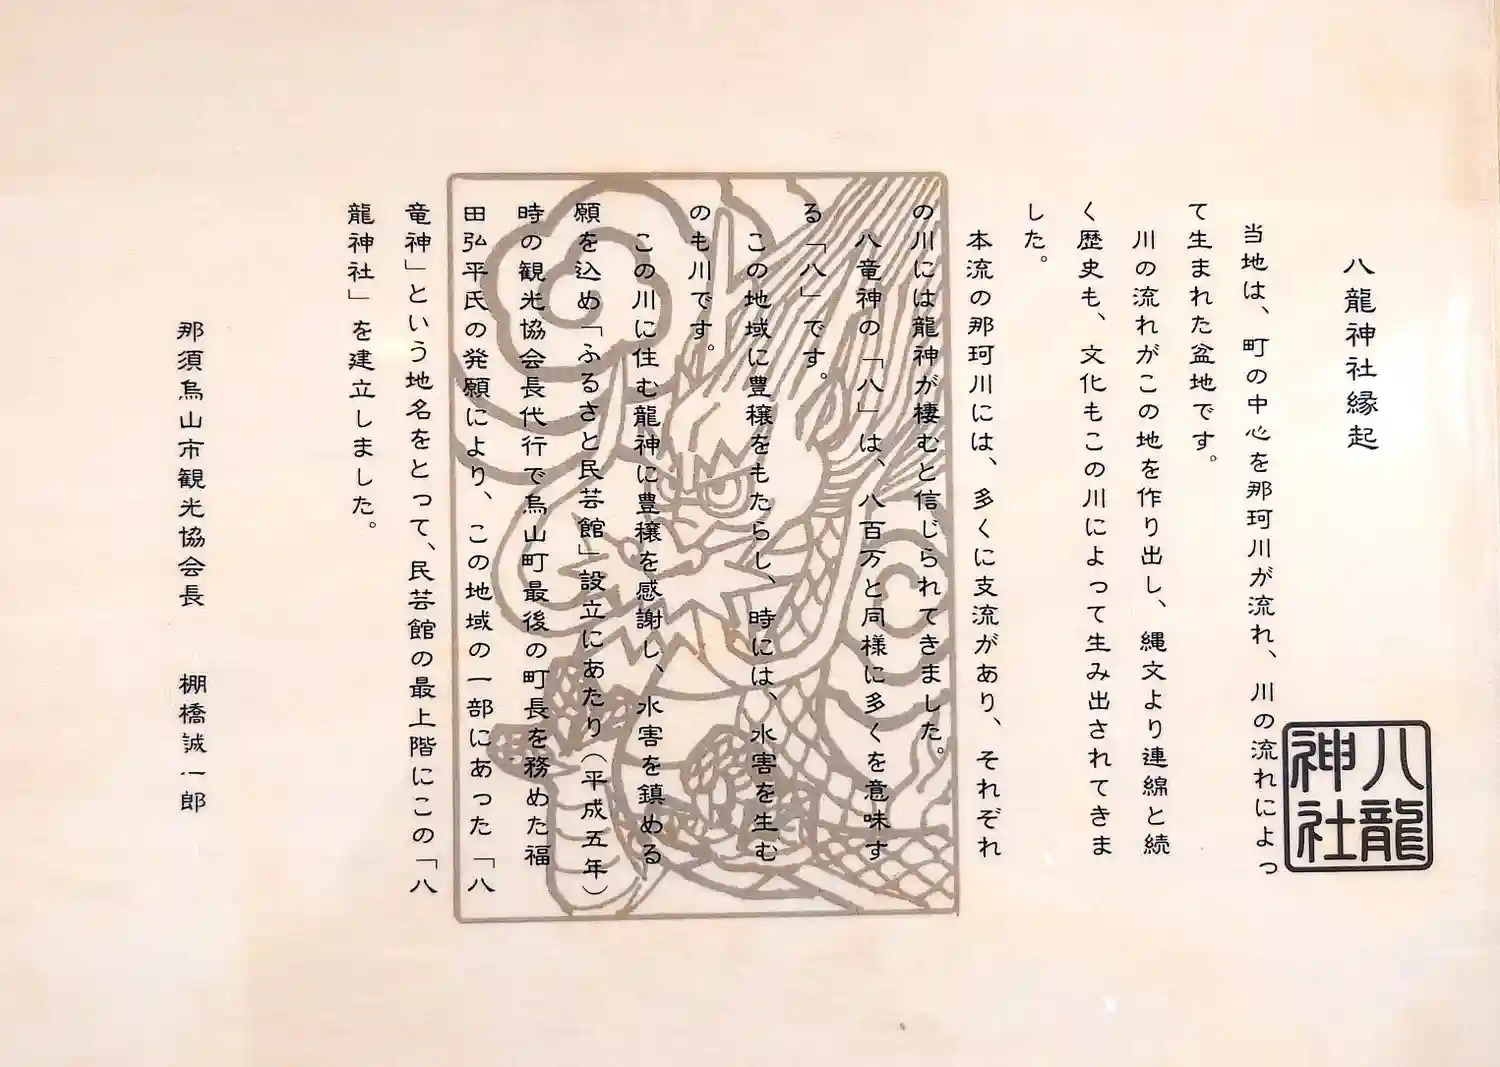 八龍神社縁起
当地は、町の中心を那珂川が流れ、川の流れによっ
て生まれた盆地です。
川の流れがこの地を作り出し、縄文より連綿と続
く歴史も、文化もこの川によって生み出されてきま
した。
本流の那珂川には、多くに支流があり、それぞれ
の川には龍神が棲むと信じられてきました。
八竜神の「八」は、八百万と同様に多くを意味す
る「八」です。
この地域に豊穣をもたらし、時には、水害を生む
のも川です。
この川に住む龍神に豊穣を感謝し、水害を鎮める
願を込め「ふるさと民芸館」設立にあたり(平成五年)
時の観光協会長代行で烏山町最後の町長を務めた福
田弘平氏の発願により、この地域の一部にあった「八
竜神」という地名をとって、民芸館の最上階にこの「八
龍神社」を建立しました。
那須烏山市観光協会長 棚橋誠一郎
八龍
神社